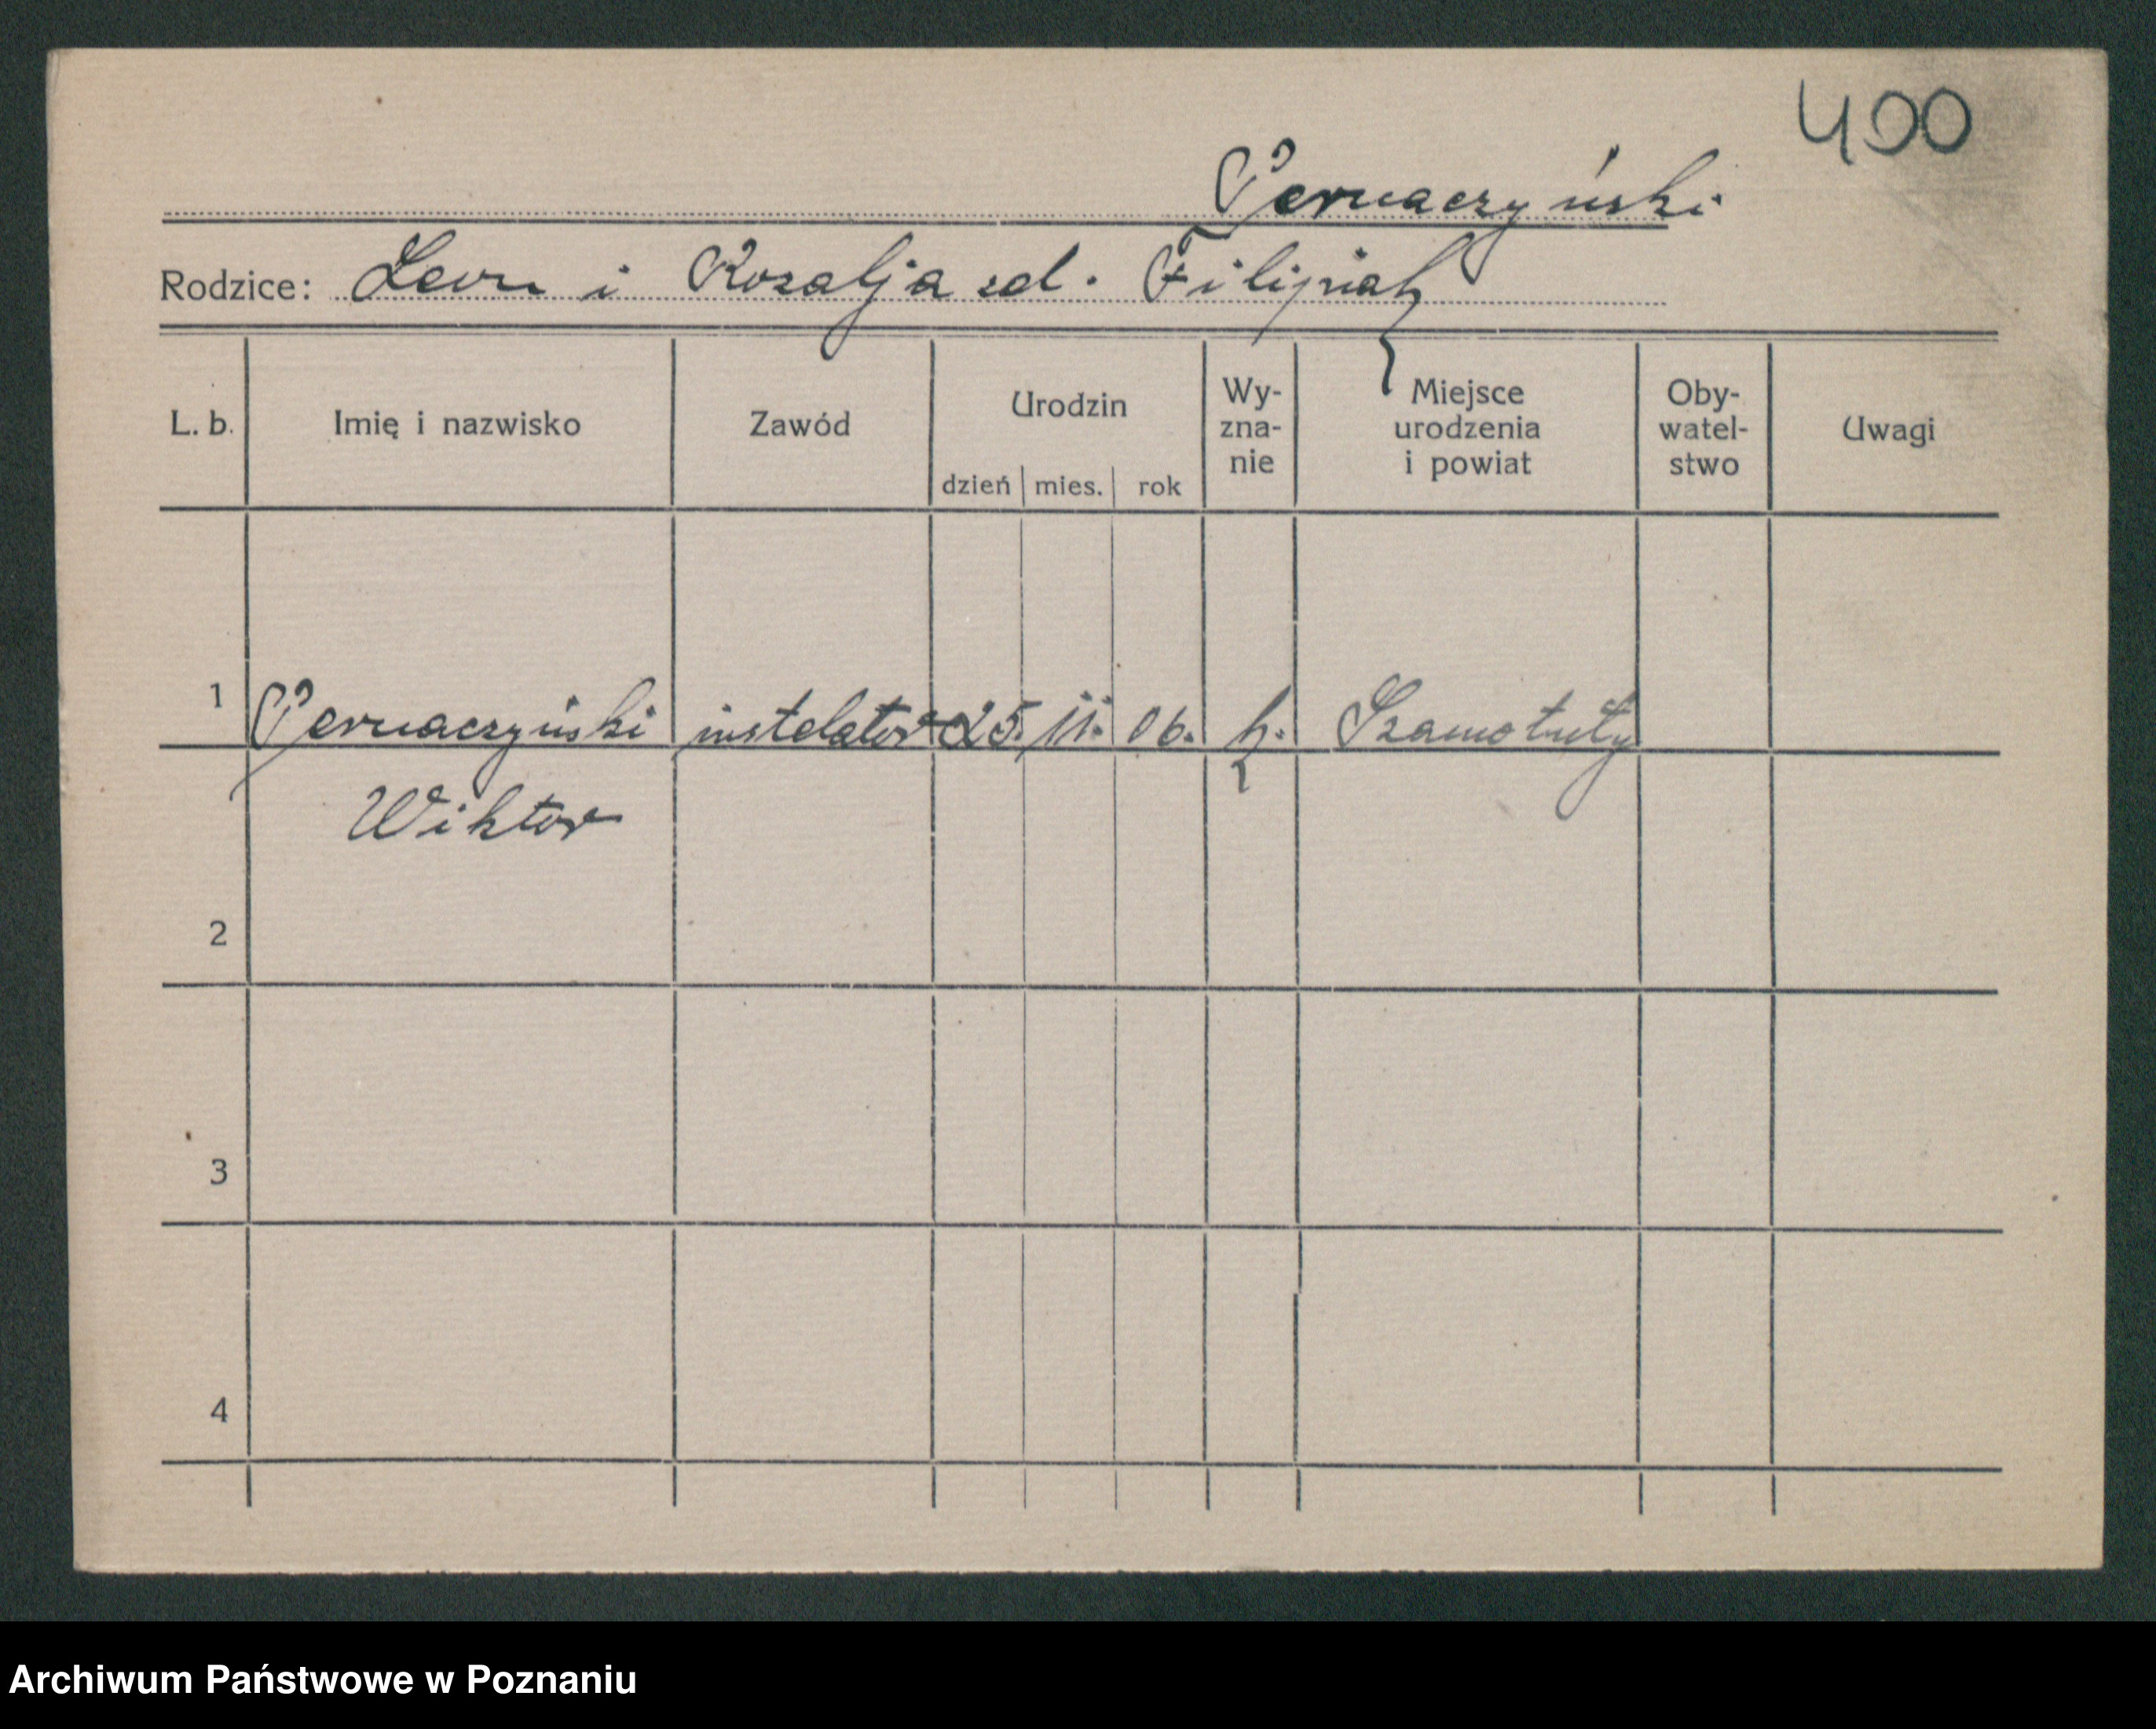 400
Pernaczyński
Rodzice: Leon i Rozalja zd. Filipiak
L. b. Imię i nazwisko Zawód Urodzin dzień mies. rok Wy-zna-nie Miejsce urodzenia i powiat Oby-watel-stwo Uwagi
1 Pernaczyński instelator 25. 11. 06. k. Szamotuły
Wiktor
2
3
4
Archiwum Państwowe w Poznaniu